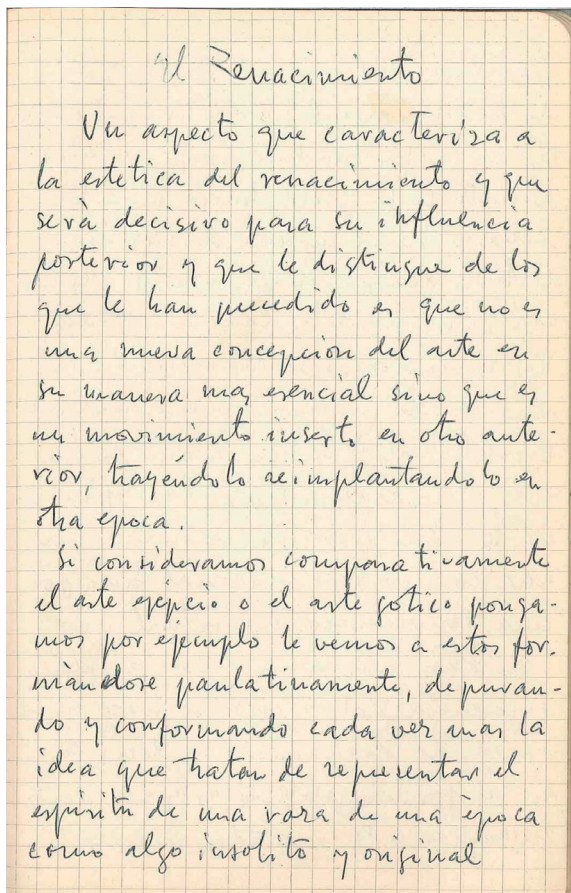 El Renacimiento
Un aspecto que caracteriza a
la estetica del renacimiento y que
serà decisivo para su influencia
posterior y que le distingue de los
que le han precedido es que no es
una nueva concepcion del arte en
su manera mas esencial sino que es
un movimiento inserto en otro ante-
rior, trayéndolo reimplantandolo en
otra epoca.
Si consideramos comparativamente
el arte egipcio o el arte gotico ponga-
mos por ejemplo le vemos a estos for-
màndose paulatinamente, depuran-
do y conformando cada vez mas la
idea que tratan de representar el
espiritu de una raza de una època
como algo insolito y original